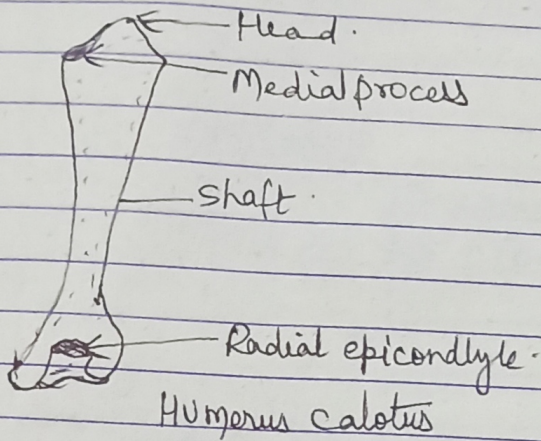 Head.
Medial process
shaft.
Radial epicondlyle.
Humerus calotus